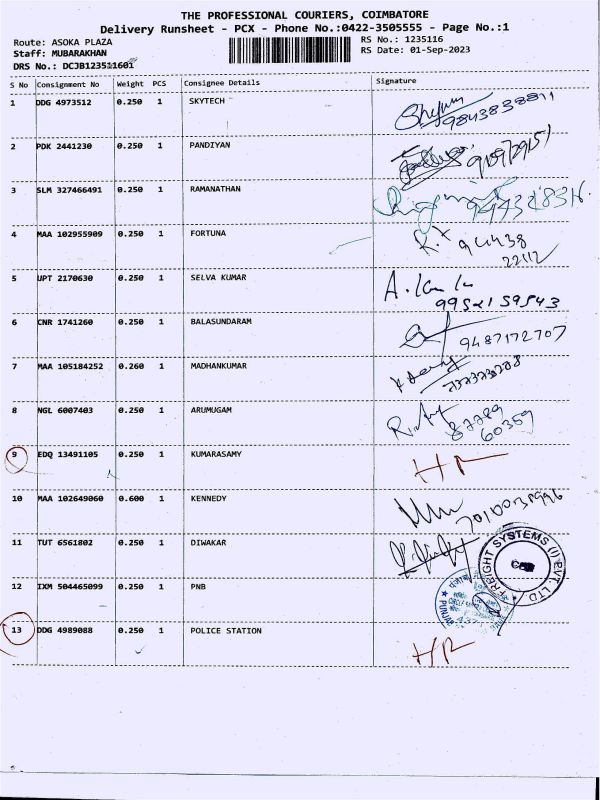 THE PROFESSIONAL COURIERS, COIMBATORE
Delivery Runsheet - PCX - Phone No.:0422-3505555 - Page No.:1
Route: ASOKA PLAZA RS No.: 1235116
Staff: MUBARAKHAN RS Date: 01-Sep-2023
DRS No.: DCJB123511601
S No Consignment No Weight PCS Consignee Details Signature
1 DDG 4973512 0.250 1 SKYTECH 9843838811
2 PDK 2441230 0.250 1 PANDIYAN
3 SLM 327466491 0.250 1 RAMANATHAN
4 MAA 102955909 0.250 1 FORTUNA 94438
22112
5 UPT 2170630 0.250 1 SELVA KUMAR
9952159543
6 CNR 1741260 0.250 1 BALASUNDARAM 9487172707
7 MAA 105184252 0.260 1 MADHANKUMAR
8 NGL 6007403 0.250 1 ARUMUGAM 87789
60359
9 EDQ 13491105 0.250 1 KUMARASAMY
10 MAA 102649060 0.600 1 KENNEDY
11 TUT 6561802 0.250 1 DIWAKAR
FREIGHT SYSTEMS (I) PVT. LTD
12 IXM 504465099 0.250 1 PNB
13 DDG 4989088 0.250 1 POLICE STATION